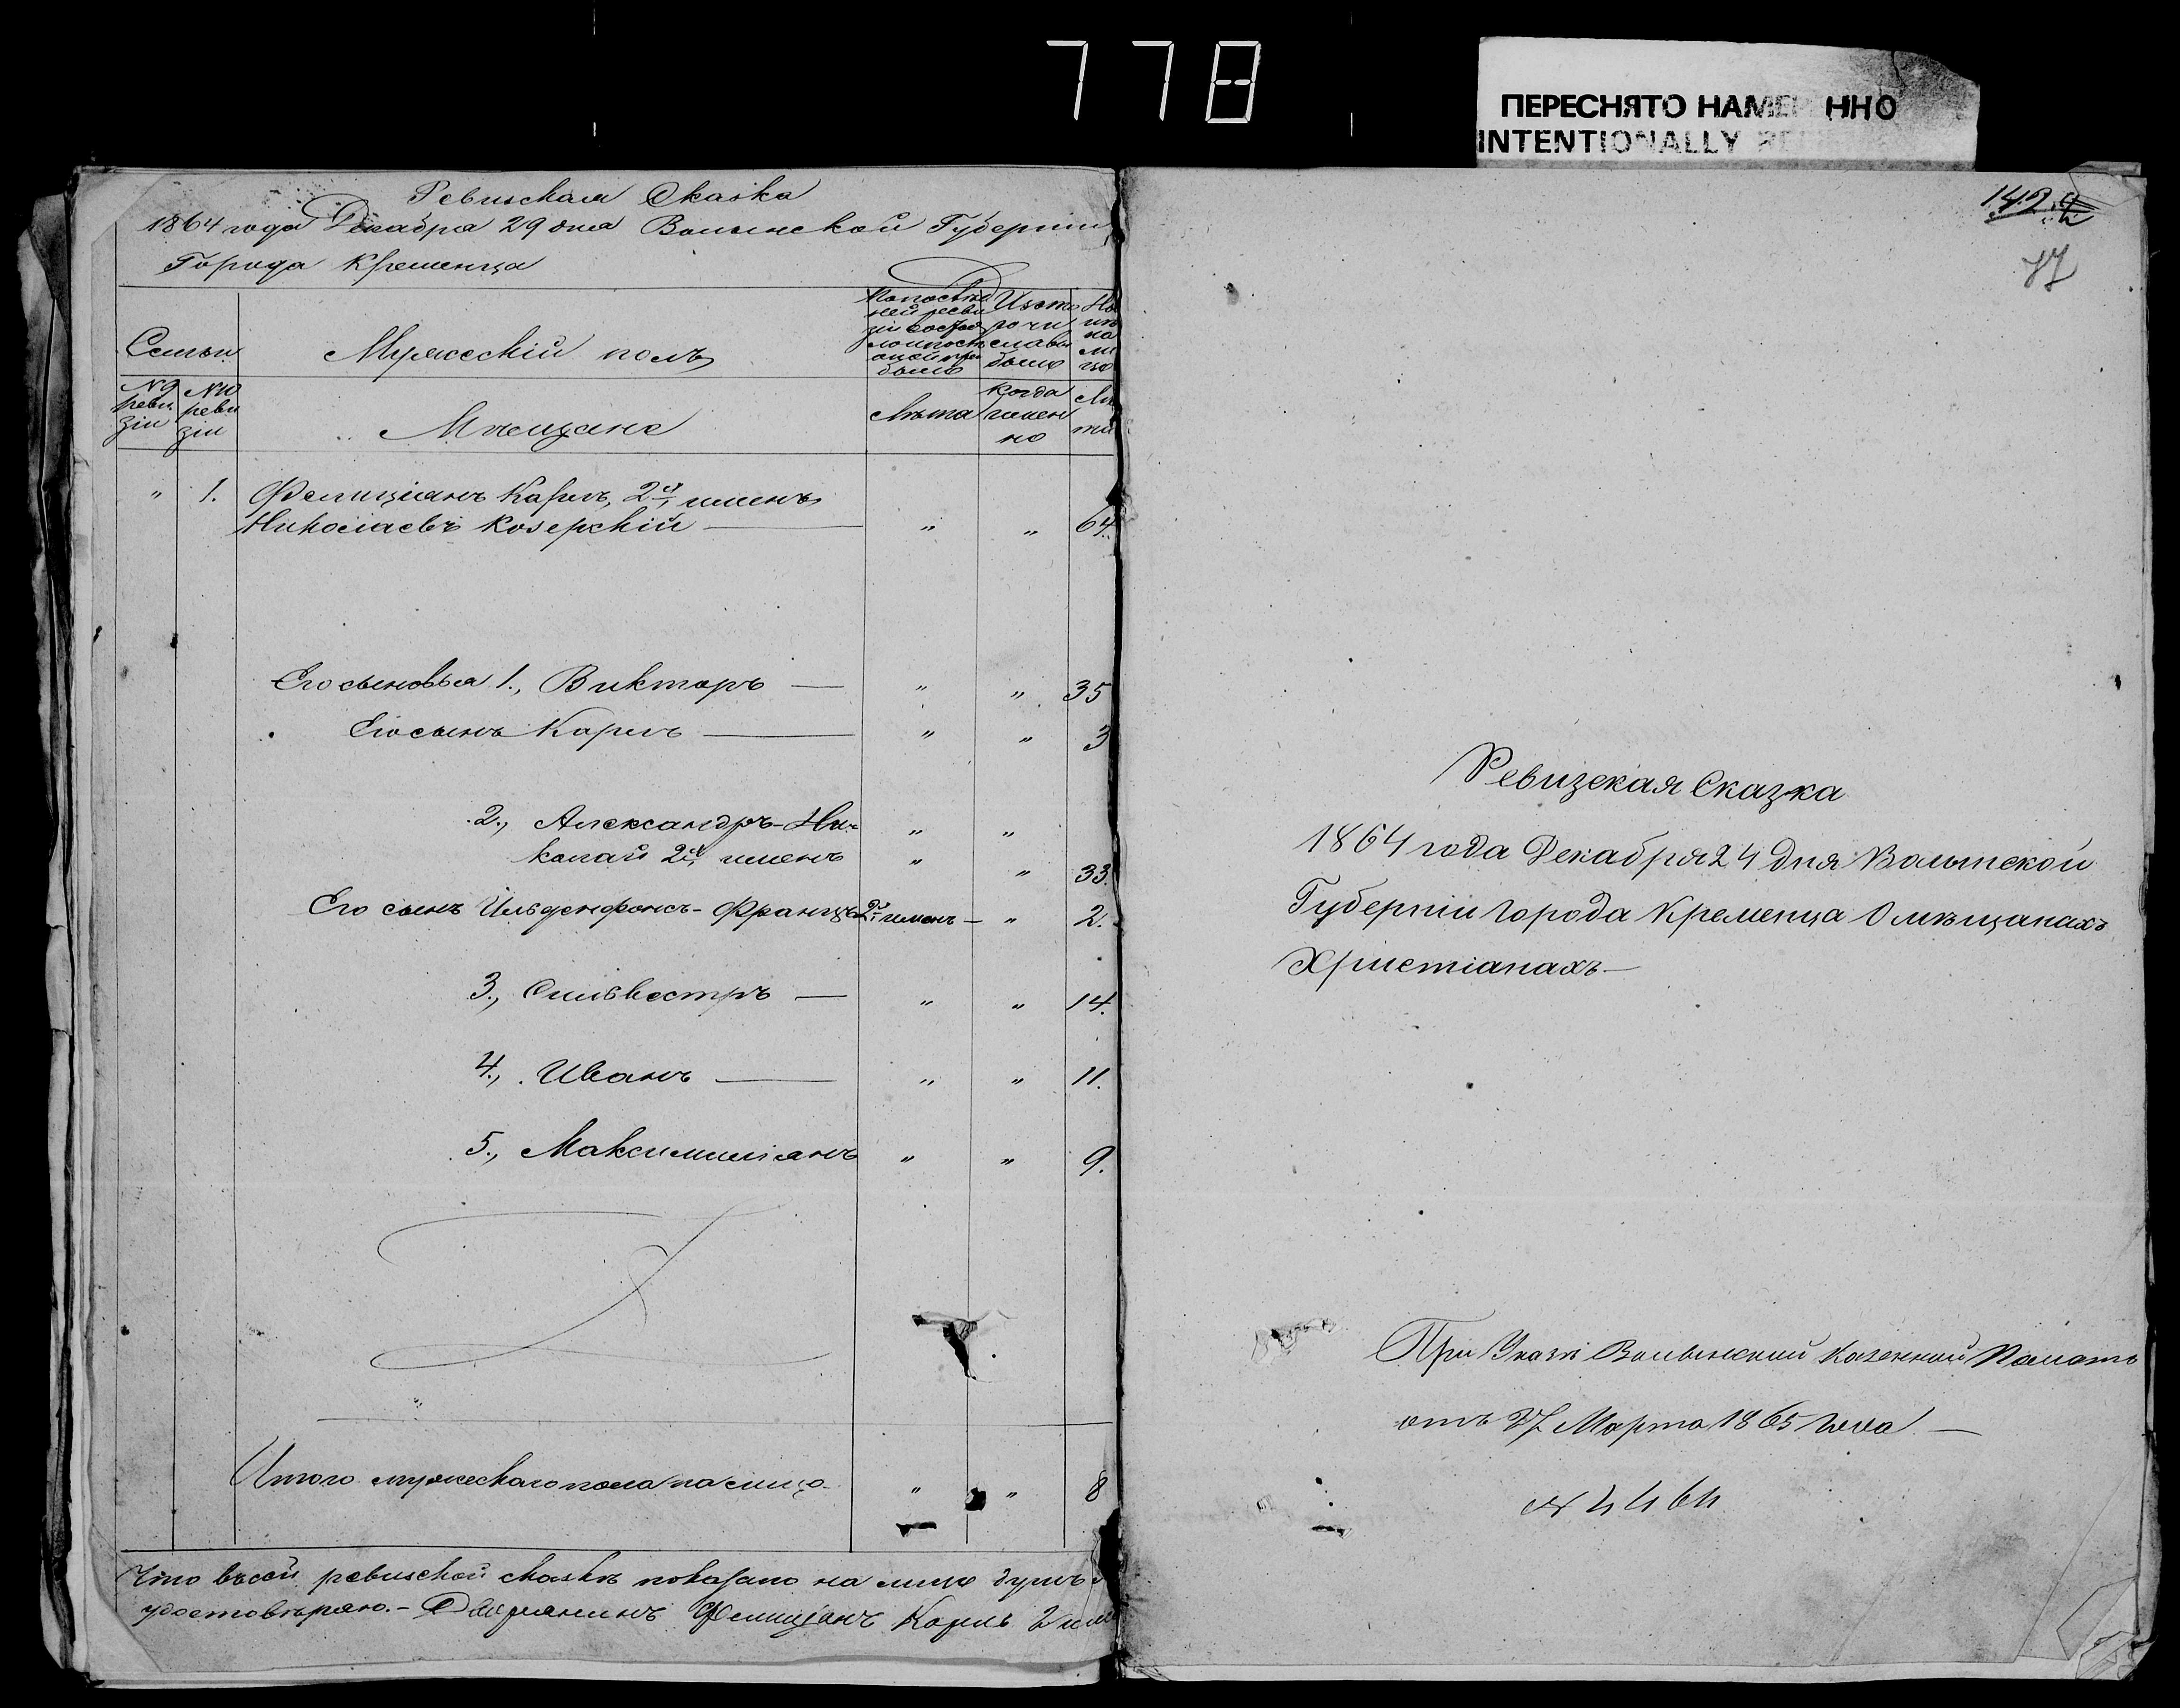 778
ПЕРЕСНЯТО НАМЕ ННО
INTENTIONALLY
Ревизская Сказка
1864 года Декабря 29 дня Волынской Губерніи
Города Кременца
Семьи
Мужескій полъ
По послѣд
ней реви
зіи состоя
ло и послѣ
оной при
было
Изъ то
го чи
сла вы
было
На
ли
цо
№ 9
реви
зіи
№ 10
реви
зіи
Мѣщане
Лѣта
когда
имен
но
Лѣ
та
" 1. Фелиціанъ Карлъ, 2хъ именъ
Николаевъ Козерскій — " " 64.
Его сыновья 1., Викторъ — " " 35
Его сынъ Карлъ — " " 3
2., Александръ-Ни- " "
колай 2хъ именъ " " 33.
Его сынъ Ильдефонсъ-Францъ 2хъ именъ — " 2.
3., Сильвестръ — " " 14.
4., Иванъ — " " 11.
5., Максимиліанъ " " 9.
Итого мужескаго пола на лицо " " 8
Что въ сей ревизской сказкѣ показано на лицо душъ
удостовѣряю. – Фелиціанъ Карлъ 2
142
77
Ревизская Сказка
1864 года Декабря 24 дня Волынской
Губерніи города Кременца О мѣщанахъ
Христіанахъ —
При Указѣ Волынской Казенной Палаты
отъ 27 Марта 1865 года —
№ 4464